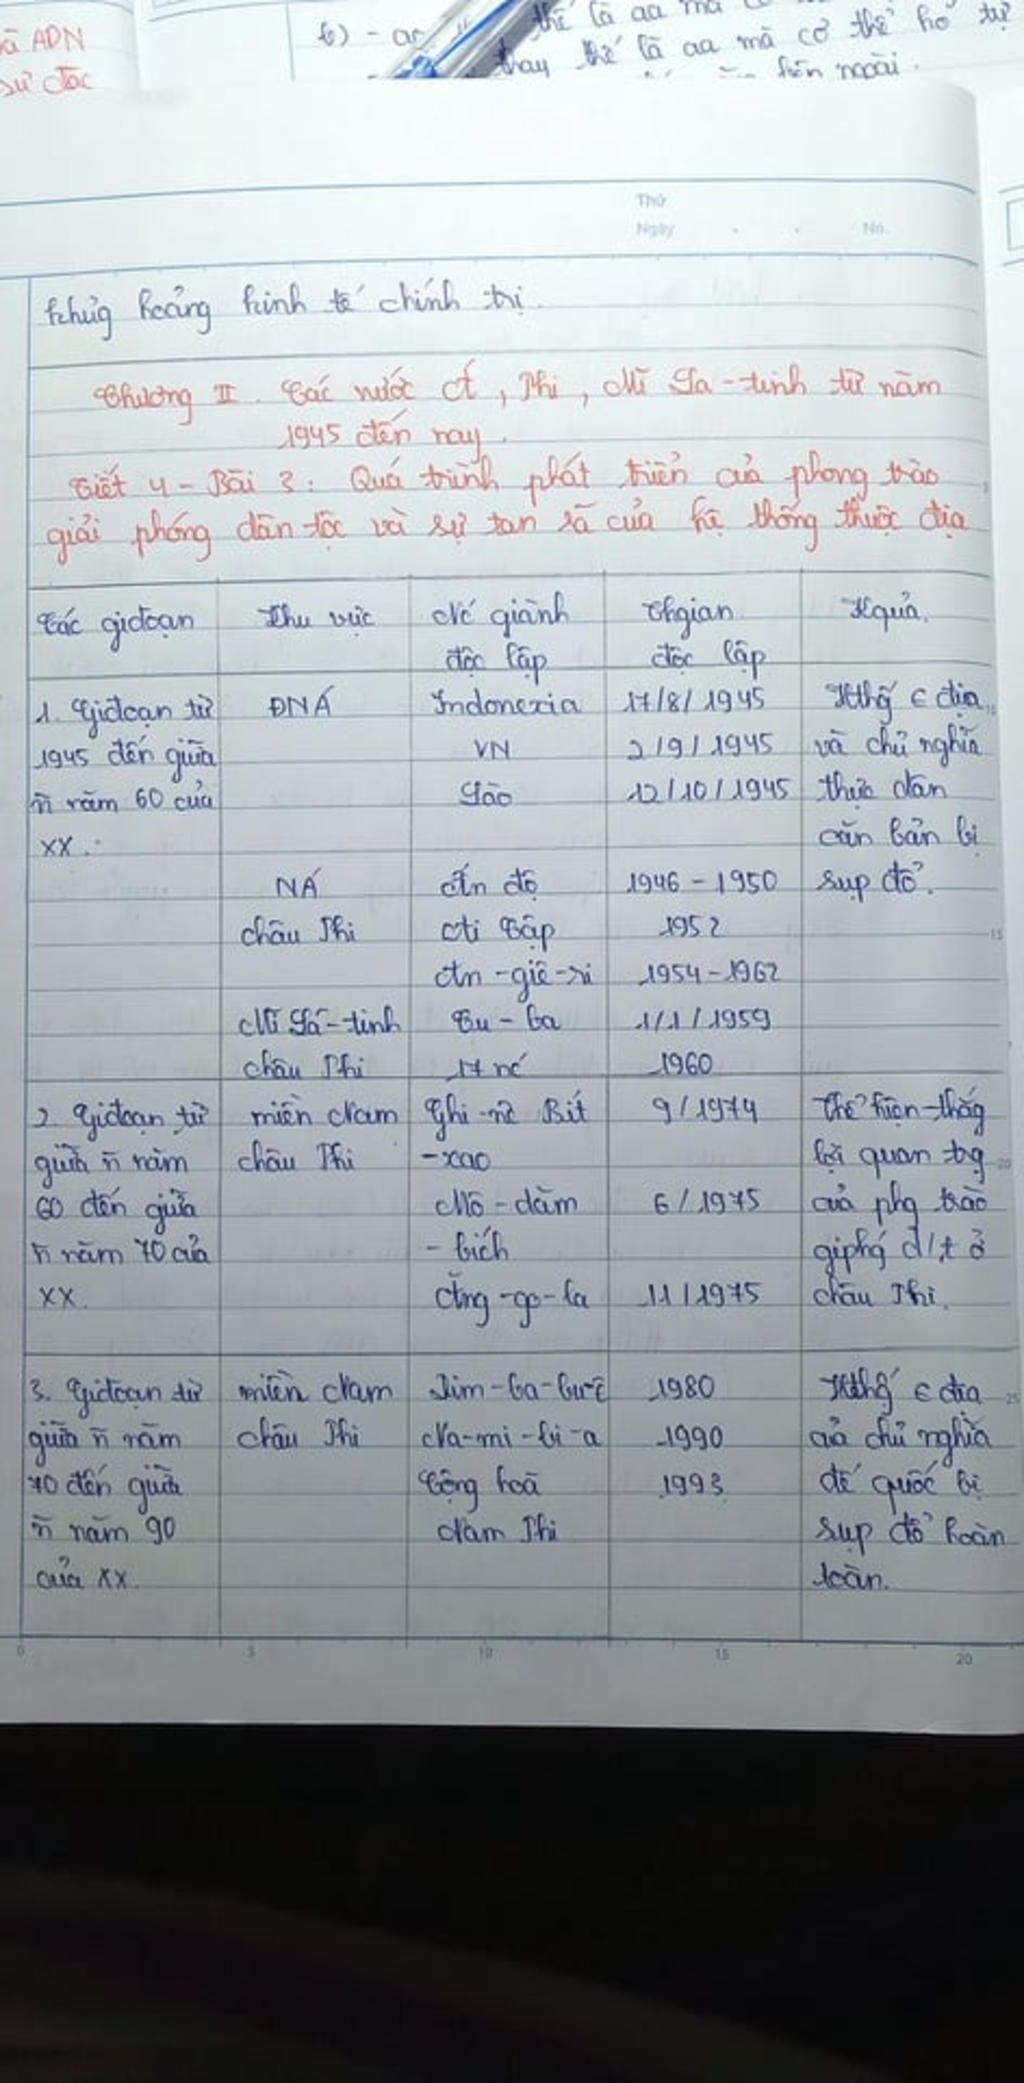 ã ADN
sự đọc
b) - ac
thế là aa mà
thay thế là aa mà cơ thể hô
bên ngoài.
Thứ
Ngày . . No.
khủg hoảng kinh tế chính trị.
Chương II. Các nước Á, Phi, Mĩ La-tinh từ năm
1945 đến nay.
Tiết 4 - Bài 3: Quá trình phát triển của phong trào
giải phóng dân tộc và sự tan rã của hệ thống thuộc địa
Các giđoạn Khu vực Nc giành Thgian Kquả.
độc lập độc lập
1. Giđoạn từ ĐNÁ Indonexia 17/8/1945 Hthố € địa
1945 đến giữa VN 2/9/1945 và chủ nghĩa
n̄ năm 60 của Lào 12/10/1945 thực dân
XX. căn bản bị
NÁ Ấn độ 1946 - 1950 sụp đổ.
châu Phi Ai Cập 1952 15
An-giê-ri 1954-1962
Mĩ La-tinh Cu-ba 1/1/1959
châu Phi 17 nc 1960
2. Giđoạn từ miền Nam Ghi-nê Bit 9/1974 thể hiện thắg
giữa n̄ năm châu Phi -xao lợi quan trg 20
60 đến giữa Mô-dăm 6/1975 của phg trào
n̄ năm 70 của - bích giphg d/t ở
XX. Ăng-go-la 11/1975 châu Phi.
3. Giđoạn từ miền Nam Dim-ba-bu-ê 1980 Hthố € địa 25
giữa n̄ năm châu Phi Na-mi-bi-a 1990 của chủ nghĩa
70 đến giữa Cộng hoà 1993 đế quốc bị
n̄ năm 90 Nam Phi sụp đổ hoàn
của XX. toàn.
0 5 10 15 20